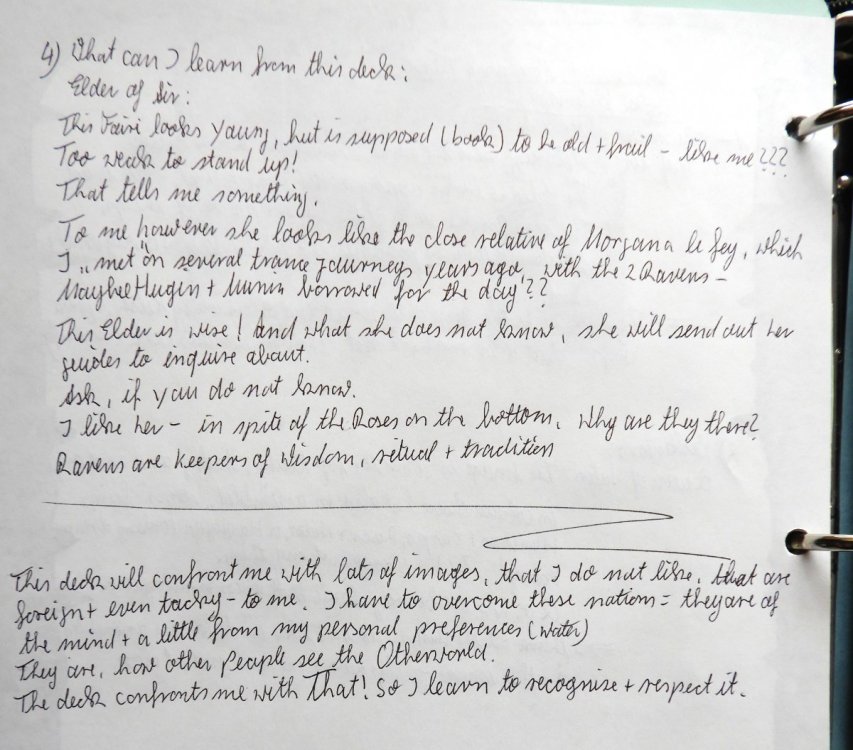 4) What can I learn from this deck:
Elder of Air:
This Fairi looks young, but is supposed (book) to be old + frail - like me???
Too weak to stand up!
That tells me something.
To me however she looks like the close relative of Morgana le fey, which
I „met" on several trance journeys years ago, with the 2 Ravens -
Maybe Hugin + Munin borrowed for the day??
This Elder is wise! And what she does not know, she will send out her
guides to inquire about.
Ask, if you do not know.
I like her - in spite of the Roses on the bottom. Why are they there?
Ravens are keepers of Wisdom, ritual + tradition
This deck will confront me with lots of images, that I do not like, that are
foreign + even tacky - to me. I have to overcome these notions = they are of
the mind + a little from my personal preferences (water)
They are, how other People see the Otherworld.
The deck confronts me with That! So I learn to recognise + respect it.